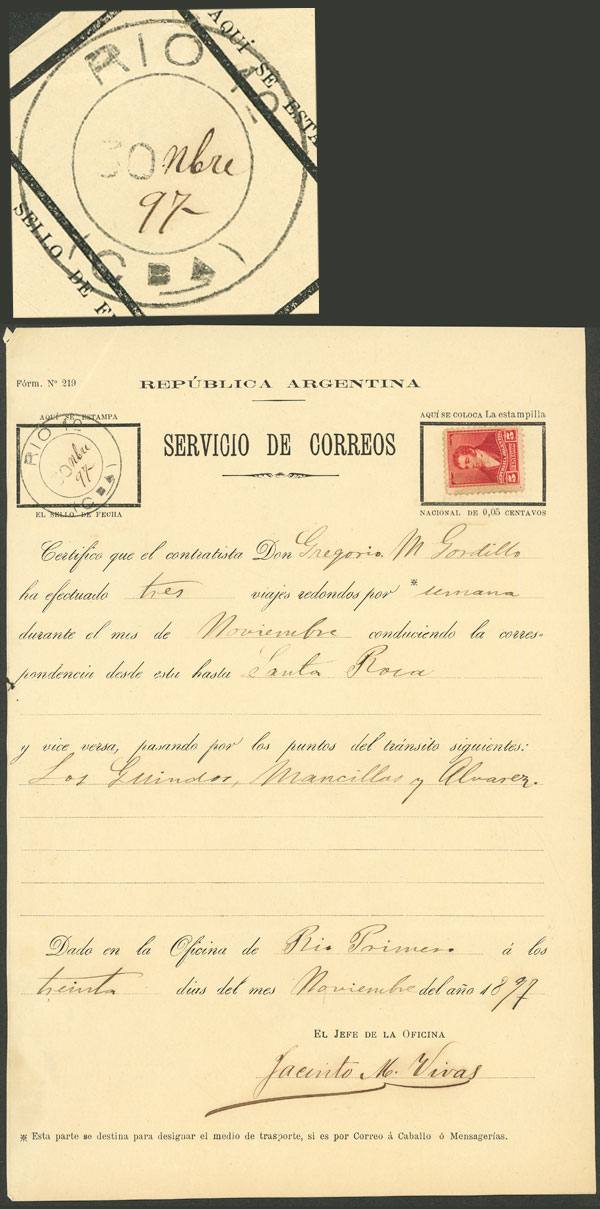 RIO 1º
30 Nbre
97-
(CBA)
AQUÍ SE ESTA
SELLO DE F
Fórm. Nº 219
REPÚBLICA ARGENTINA
AQUÍ SE ESTAMPA
RIO 1º
30 Nbre
97-
(CBA)
EL SELLO DE FECHA
SERVICIO DE CORREOS
AQUÍ SE COLOCA La estampilla
5
5
NACIONAL DE 0,05 CENTAVOS
Certifico que el contratista Don Gregorio M Gordillo
ha efectuado tres viajes redondos por * semana
durante el mes de Noviembre conduciendo la corres-
pondencia desde esta hasta Santa Rosa
y vice versa, pasando por los puntos del tránsito siguientes:
Los Guindos, Mancillas y Alvarez.
Dado en la Oficina de Rio Primero á los
treinta dias del mes Noviembre del año 1897
EL JEFE DE LA OFICINA
Jacinto M. Vivas
* Esta parte se destina para designar el medio de trasporte, si es por Correo á Caballo ó Mensagerías.